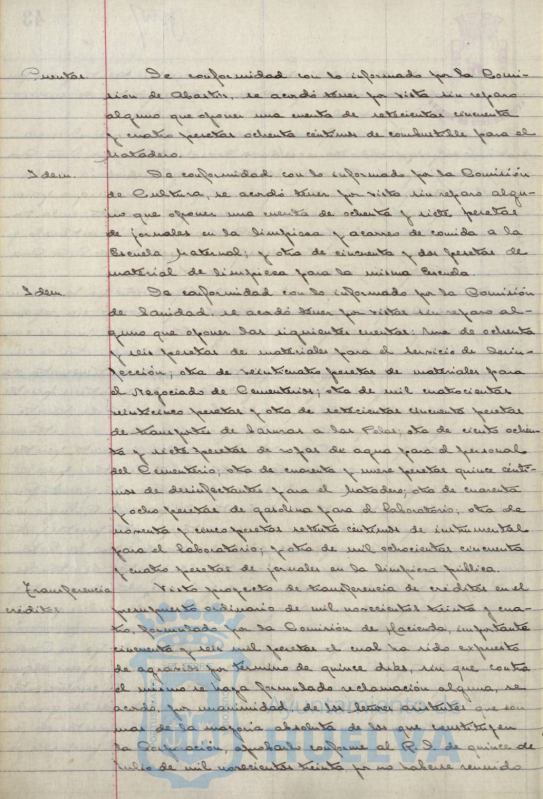 Cuentas. De conformidad con lo informado por la Comi-
sión de Abastos, se acordó tener por vista sin reparo
alguno que oponer una cuenta de setecientas cincuenta
y cuatro pesetas ochenta céntimos de combustible para el
Matadero.
Idem. De conformidad con lo informado por la Comisión
de Cultura, se acordó tener por vista sin reparo algu-
no que oponer una cuenta de ochenta y siete pesetas
de jornales en la limpieza y acarreo de comida a la
Escuela Maternal; y otra de cincuenta y dos pesetas de
material de limpieza para la misma Escuela
Idem. De conformidad con lo informado por la Comisión
de Sanidad, se acordó tener por vistas sin reparo al-
guno que oponer las siguientes cuentas: Una de ochenta
y seis pesetas de materiales para el servicio de Desin-
fección; otra de veinticuatro pesetas de materiales para
el Negociado de Cementerios; otra de mil cuatrocientas
veinticinco pesetas y otra de setecientas cincuenta pesetas
de transportes de basuras a las Islas; otra de ciento ochen-
ta y siete pesetas de ropas de agua para el personal
del Cementerio; otra de cuarenta y nueve pesetas quince cénti-
mos de desinfectantes para el Matadero; otra de cuarenta
y ocho pesetas de gasolina para el laboratorio; otra de
noventa y cinco pesetas setenta céntimos de instrumental
para el laboratorio; y otra de mil ochocientas cincuenta
y cuatro pesetas de jornales en la limpieza pública.
Transferencia Visto proyecto de transferencia de créditos en el
créditos presupuesto ordinario de mil novecientos treinta y cua-
tro, formulado por la Comisión de Hacienda, importante
cincuenta y seis mil pesetas el cual ha sido expuesto
de agravios por término de quince días, sin que contra
el mismo se haya formulado reclamación alguna, se
acordó, por unanimidad de los señores asistentes que son
mas de la mayoría absoluta de los que constituyen
la Corporación, aprobarlo conforme al R. D. de quince de
Julio de mil novecientos treinta por no haberse reunido
HUELVA